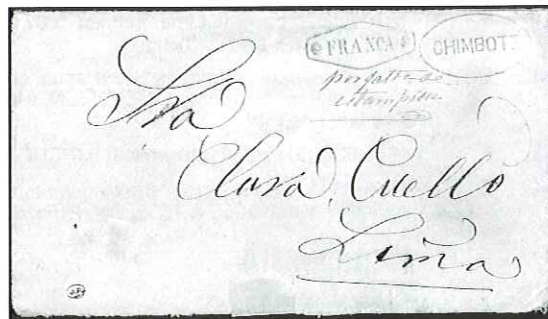 FRANCA CHIMBOTE
por falta de
estampillas
Sra
Clara Cuello
Lima